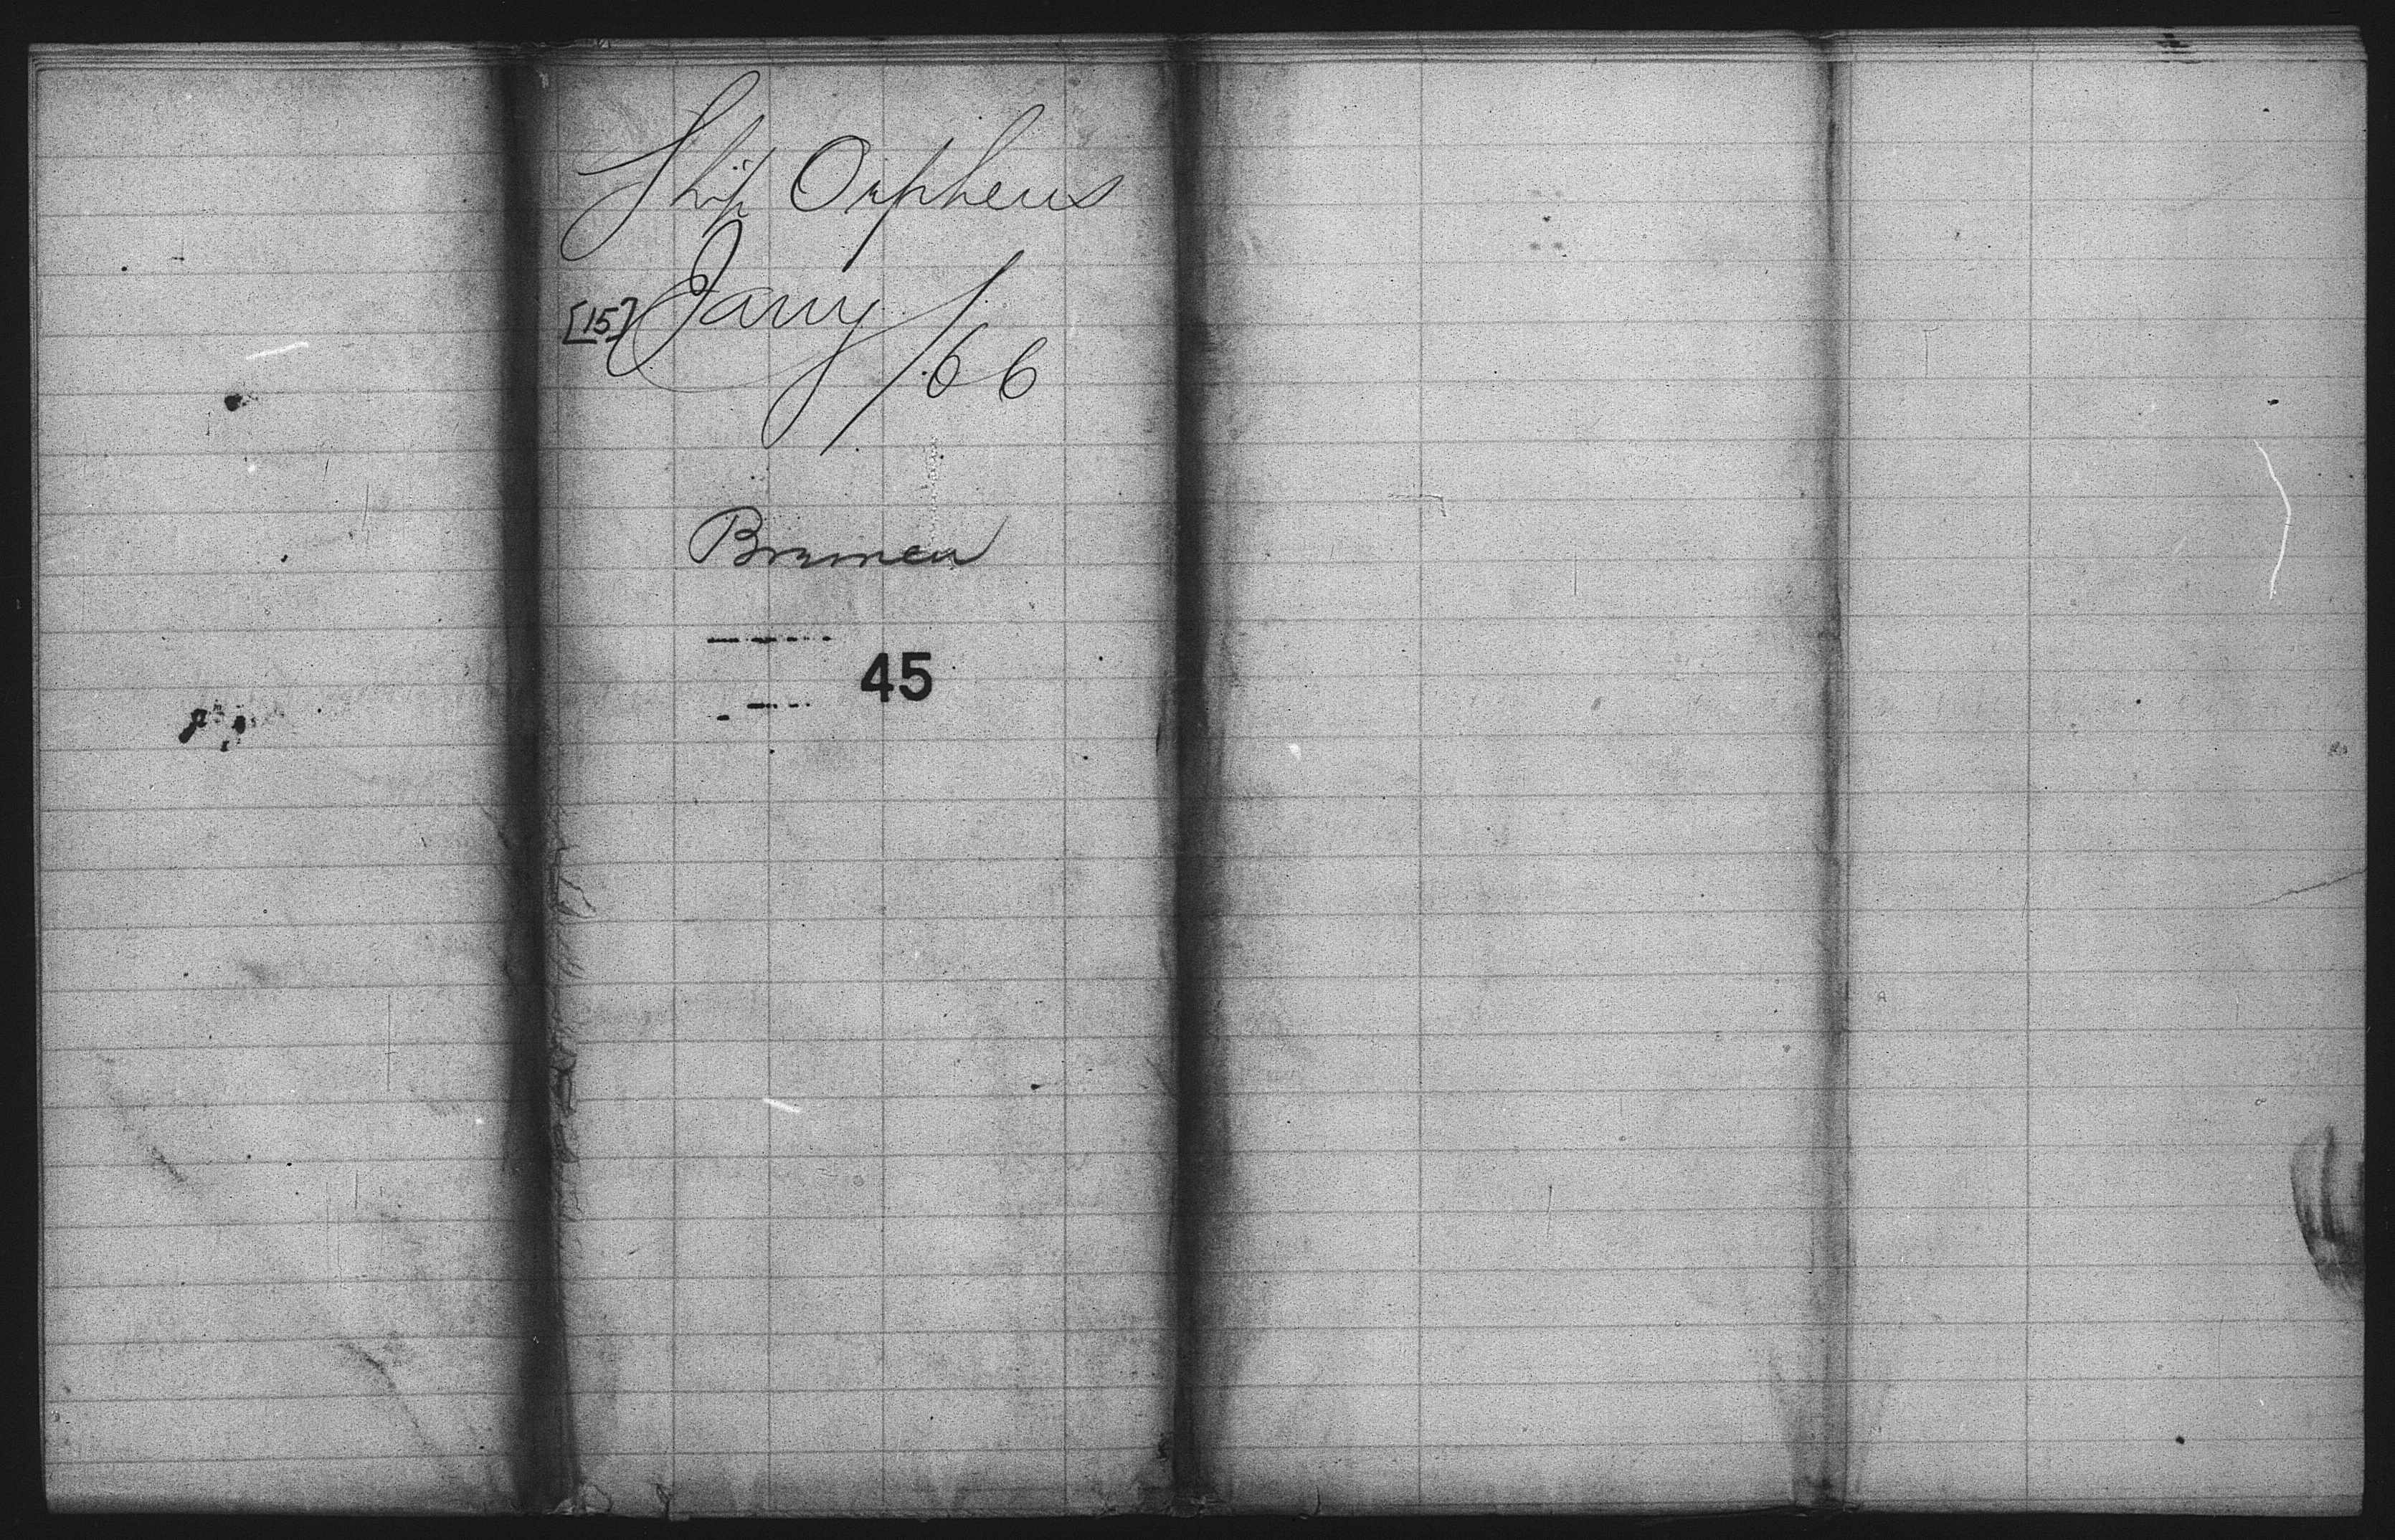 Ship Orpheus
[15] Jany /66
Bremen
45